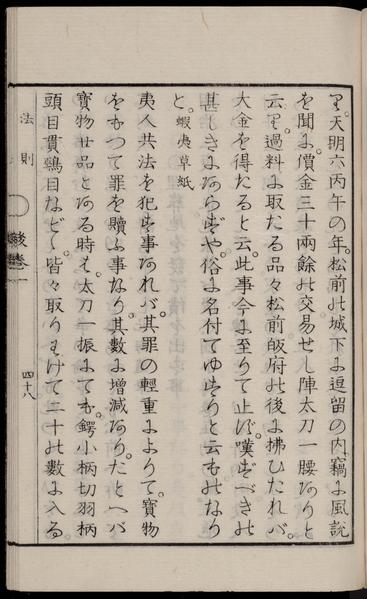 里。天明六丙午の年。松前の城下に逗留の内竊に風説
を聞に。價金三十兩餘の交易せし陣太刀一腰ありと
云里。過料に取たる品々松前皈府の後に拂ひたれバ。
大金を得たると云。此事今に至りて止ず。嘆ずべきの
甚しきにあらずや。俗に名付てゆすりと云ものなり
と。蝦夷草紙
夷人共法を犯す事あれバ。其罪の輕重によりて。寳物
をもつて罪を贖ふ事なり。其數に増減あり。たとへバ
寳物廿品とある時も。太刀一振にても。鍔小柄切羽柄
頭目貫鵐目など。皆々取りわけて二十の數に入る
法則
四十八